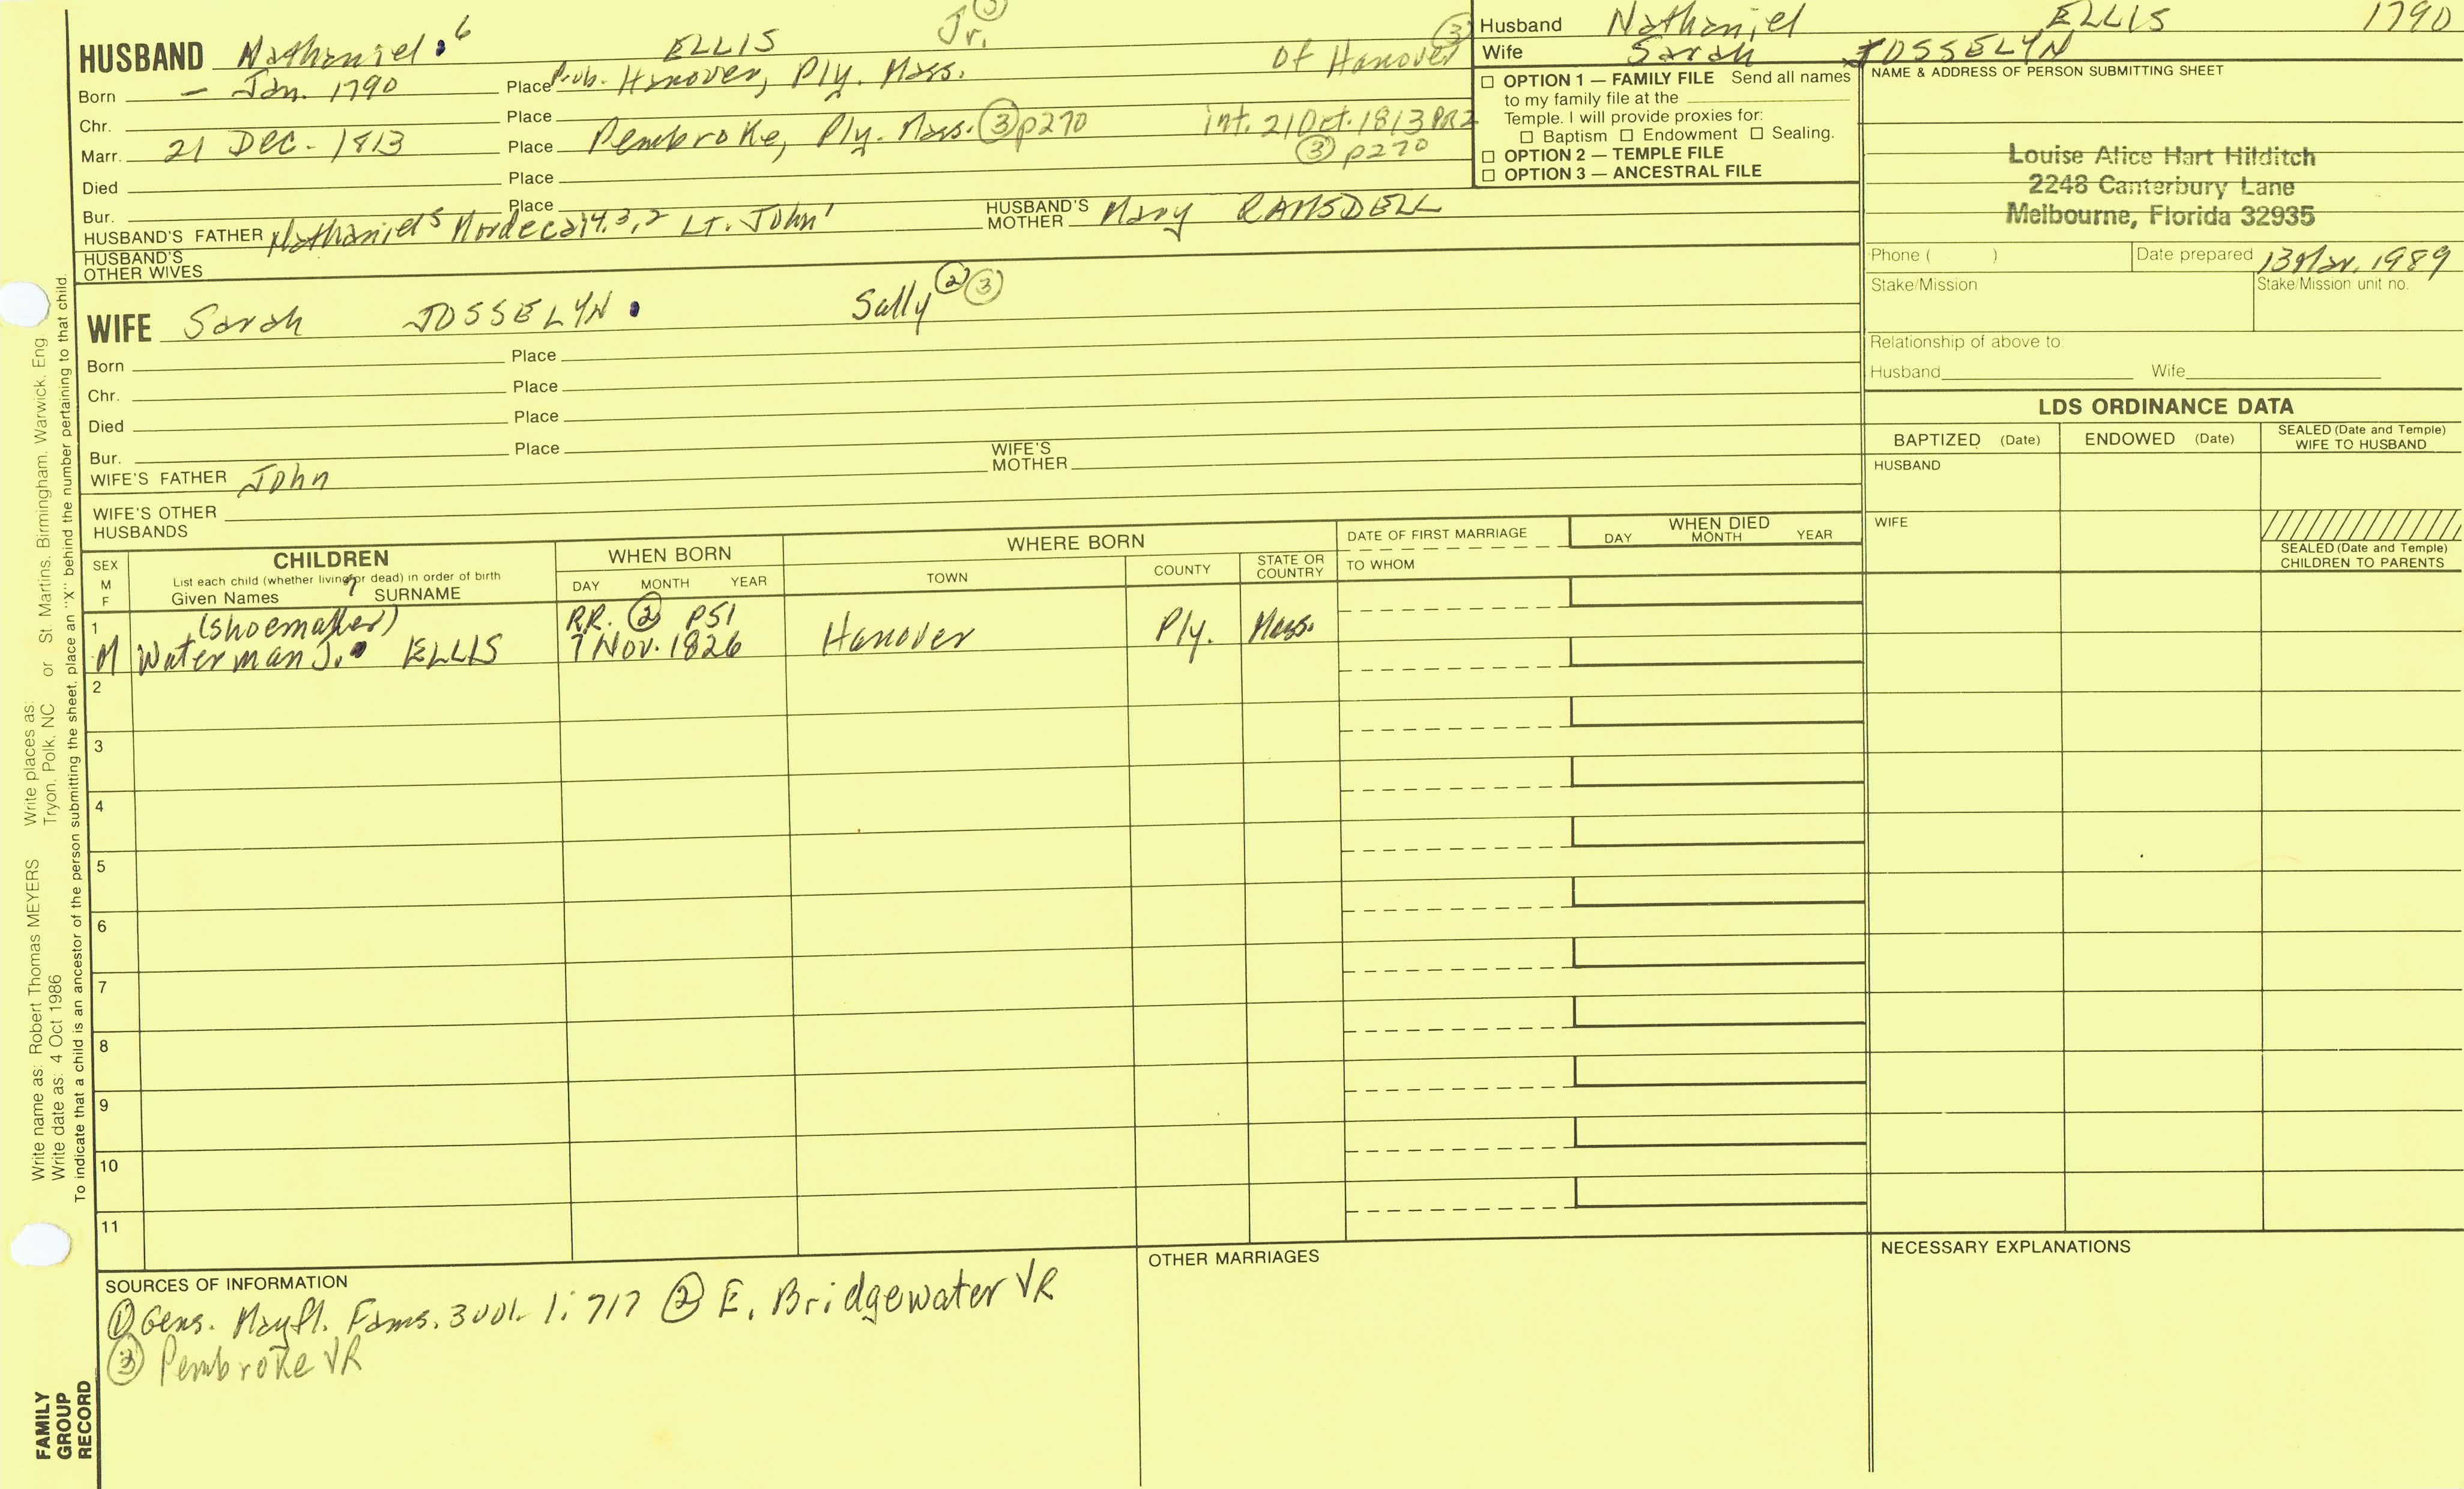 HUSBAND Nathaniel 6 ELLIS Jr. ③ of Hanover ③
Born - Jan. 1790 Place Prob. Hanover, Ply. Mass.
Chr. Place
Marr. 21 Dec. 1813 Place Pembroke, Ply. Mass. ③ p270 int. 21 Oct. 1813 PR2 ③ p270
Died Place
Bur. Place
HUSBAND'S FATHER Nathaniel5 Mordecai4,3,2 Lt. John1 HUSBAND'S MOTHER Mary RAMSDELL
HUSBAND'S OTHER WIVES
Husband Nathaniel ELLIS 1790
Wife Sarah JOSSELYN
OPTION 1 — FAMILY FILE Send all names
to my family file at the
Temple. I will provide proxies for:
Baptism Endowment Sealing.
OPTION 2 — TEMPLE FILE
OPTION 3 — ANCESTRAL FILE
NAME & ADDRESS OF PERSON SUBMITTING SHEET
Louise Alice Hart Hilditch
2248 Canterbury Lane
Melbourne, Florida 32935
Phone ( ) Date prepared 13 Mar. 1989
Stake/Mission Stake/Mission unit no.
Relationship of above to:
Husband Wife
WIFE Sarah JOSSELYN. Sally ② ③
Born Place
Chr. Place
Died Place
Bur. Place
WIFE'S FATHER John WIFE'S MOTHER
WIFE'S OTHER HUSBANDS
LDS ORDINANCE DATA
BAPTIZED (Date) ENDOWED (Date) SEALED (Date and Temple) WIFE TO HUSBAND
HUSBAND
WIFE
SEALED (Date and Temple) CHILDREN TO PARENTS
SEX M F
CHILDREN
List each child (whether living or dead) in order of birth
Given Names SURNAME
WHEN BORN
DAY MONTH YEAR
WHERE BORN
TOWN COUNTY STATE OR COUNTRY
DATE OF FIRST MARRIAGE
TO WHOM
WHEN DIED
DAY MONTH YEAR
1 (shoemaker) RR. ② P51
M Waterman J. ELLIS 7 Nov. 1826 Hanover Ply. Mass.
2
3
4
5
6
7
8
9
10
11
SOURCES OF INFORMATION
① Gens. Mayfl. Fams. 3 vol. 1: 717 ② E. Bridgewater VR
③ Pembroke VR
OTHER MARRIAGES
NECESSARY EXPLANATIONS
Write name as: Robert Thomas MEYERS Write places as: Tryon, Polk, NC or St. Martins, Birmingham, Warwick, Eng.
Write date as: 4 Oct 1986
To indicate that a child is an ancestor of the person submitting the sheet, place an "X" behind the number pertaining to that child.
FAMILY
GROUP
RECORD